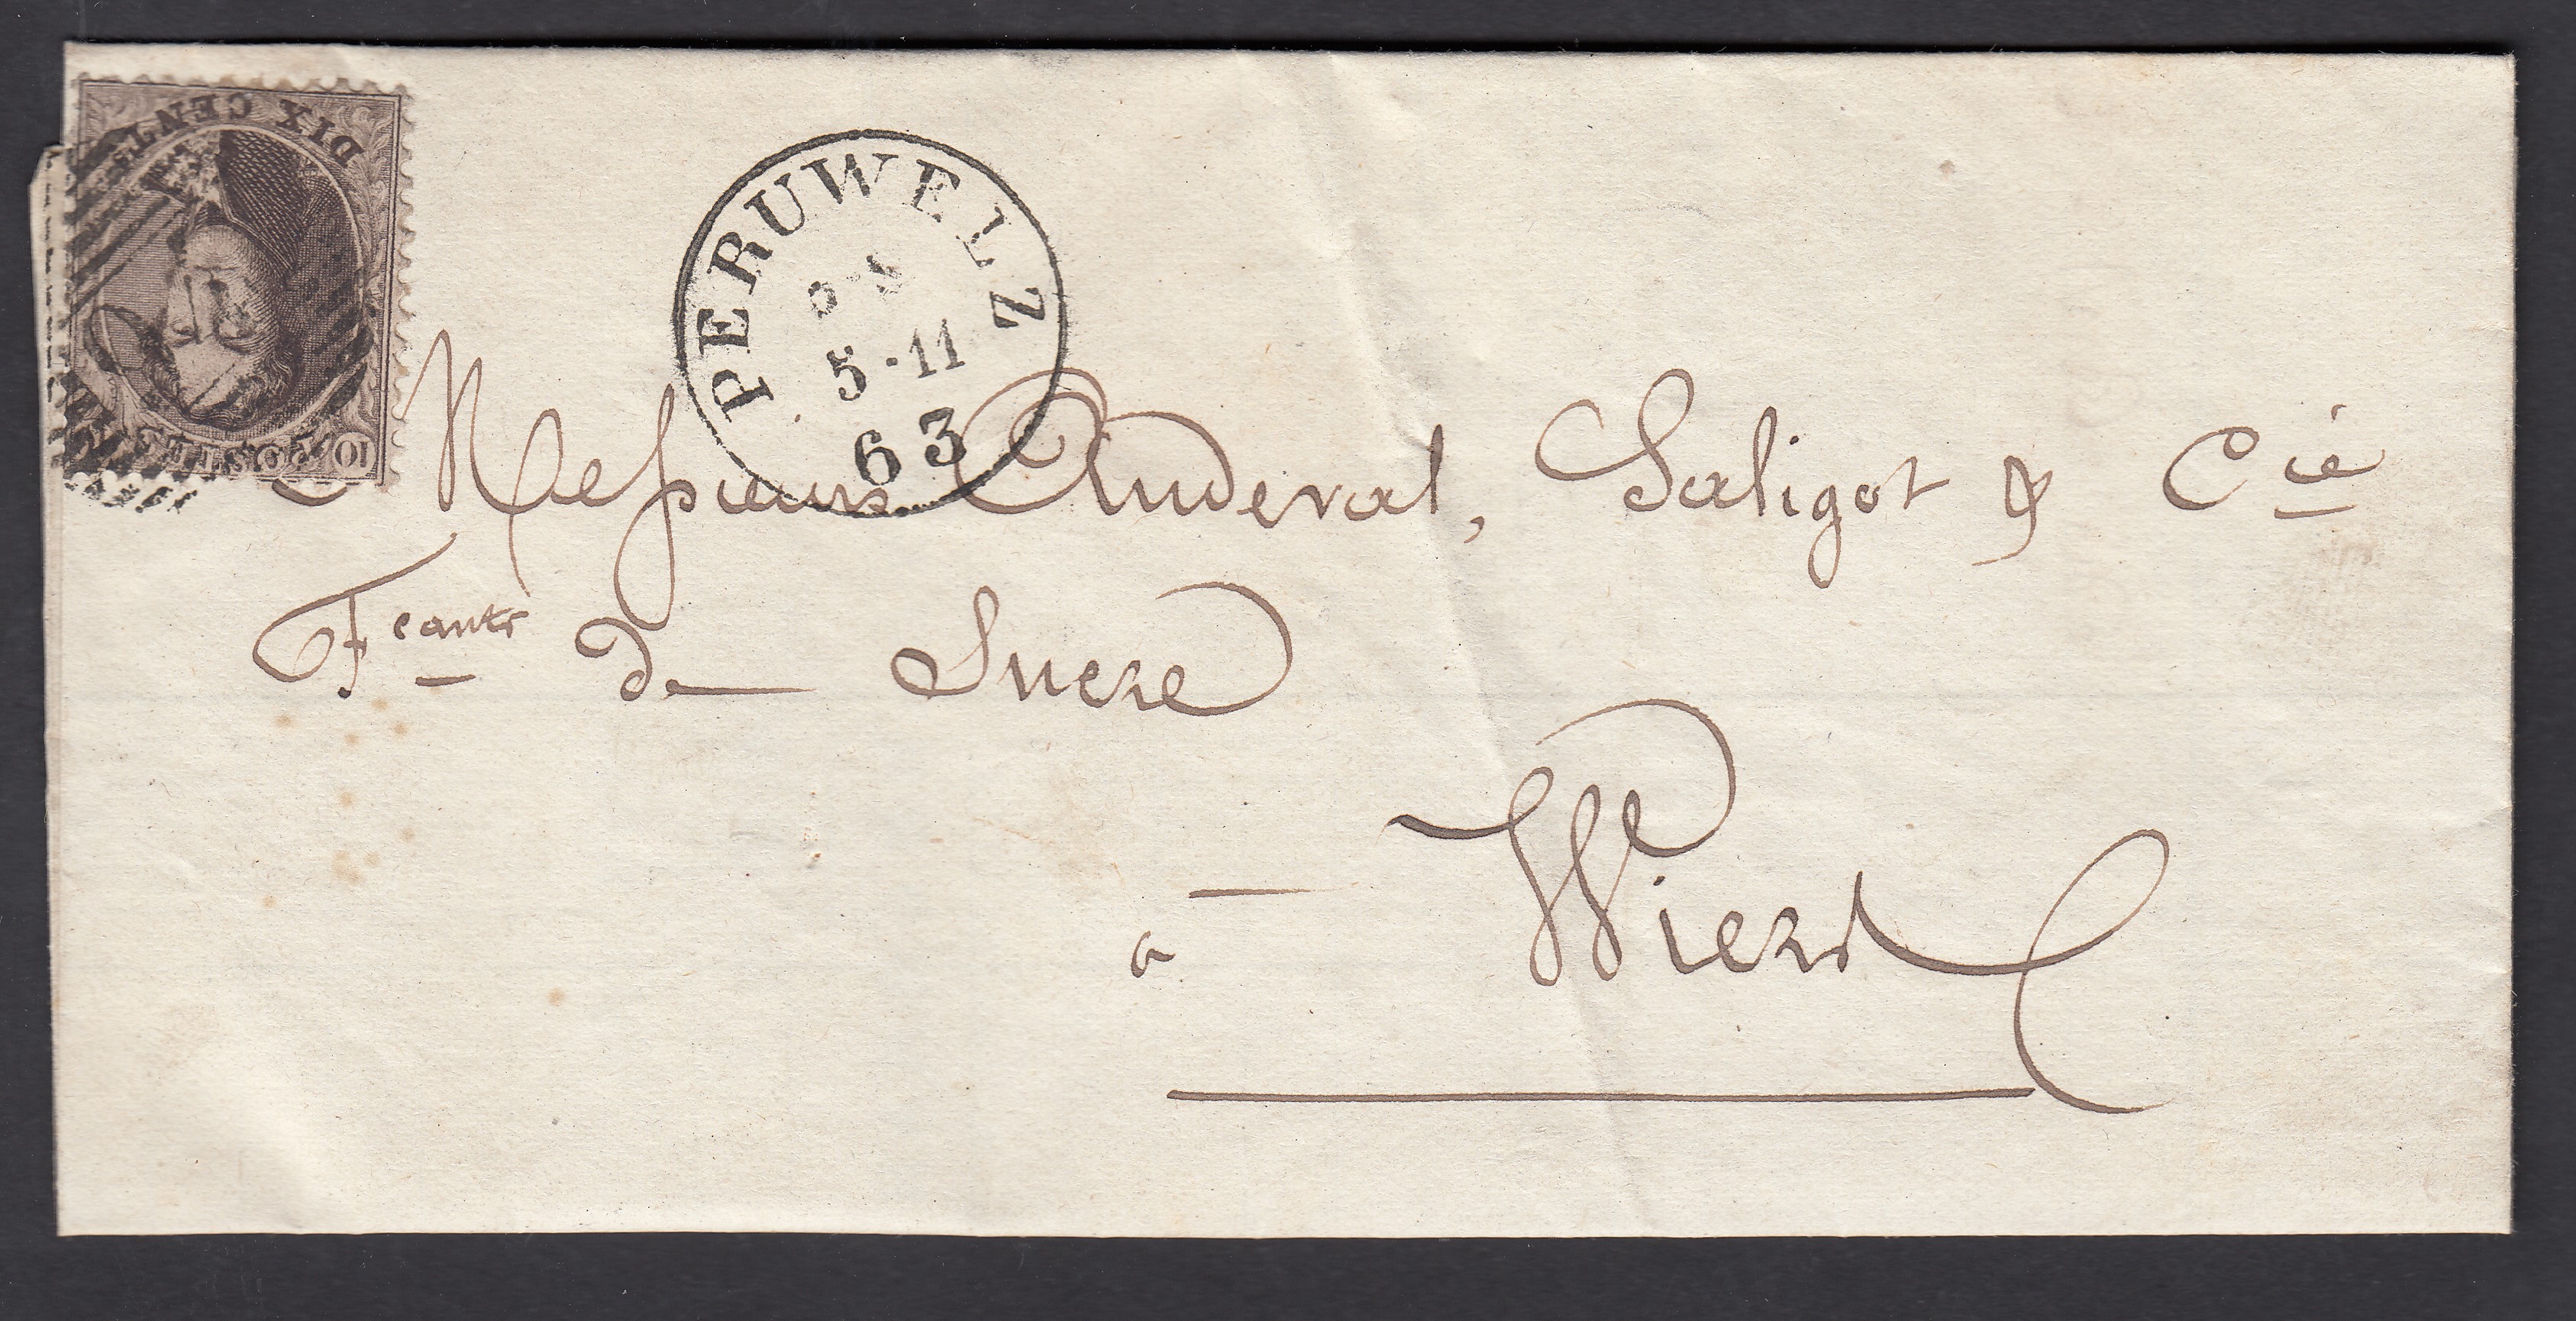 DIX CENT.
POSTES 10
PERUWELZ
5 · 11
63
Messieurs Anderal, Saligot & Cie
Fcants de Sucre
a Wiers